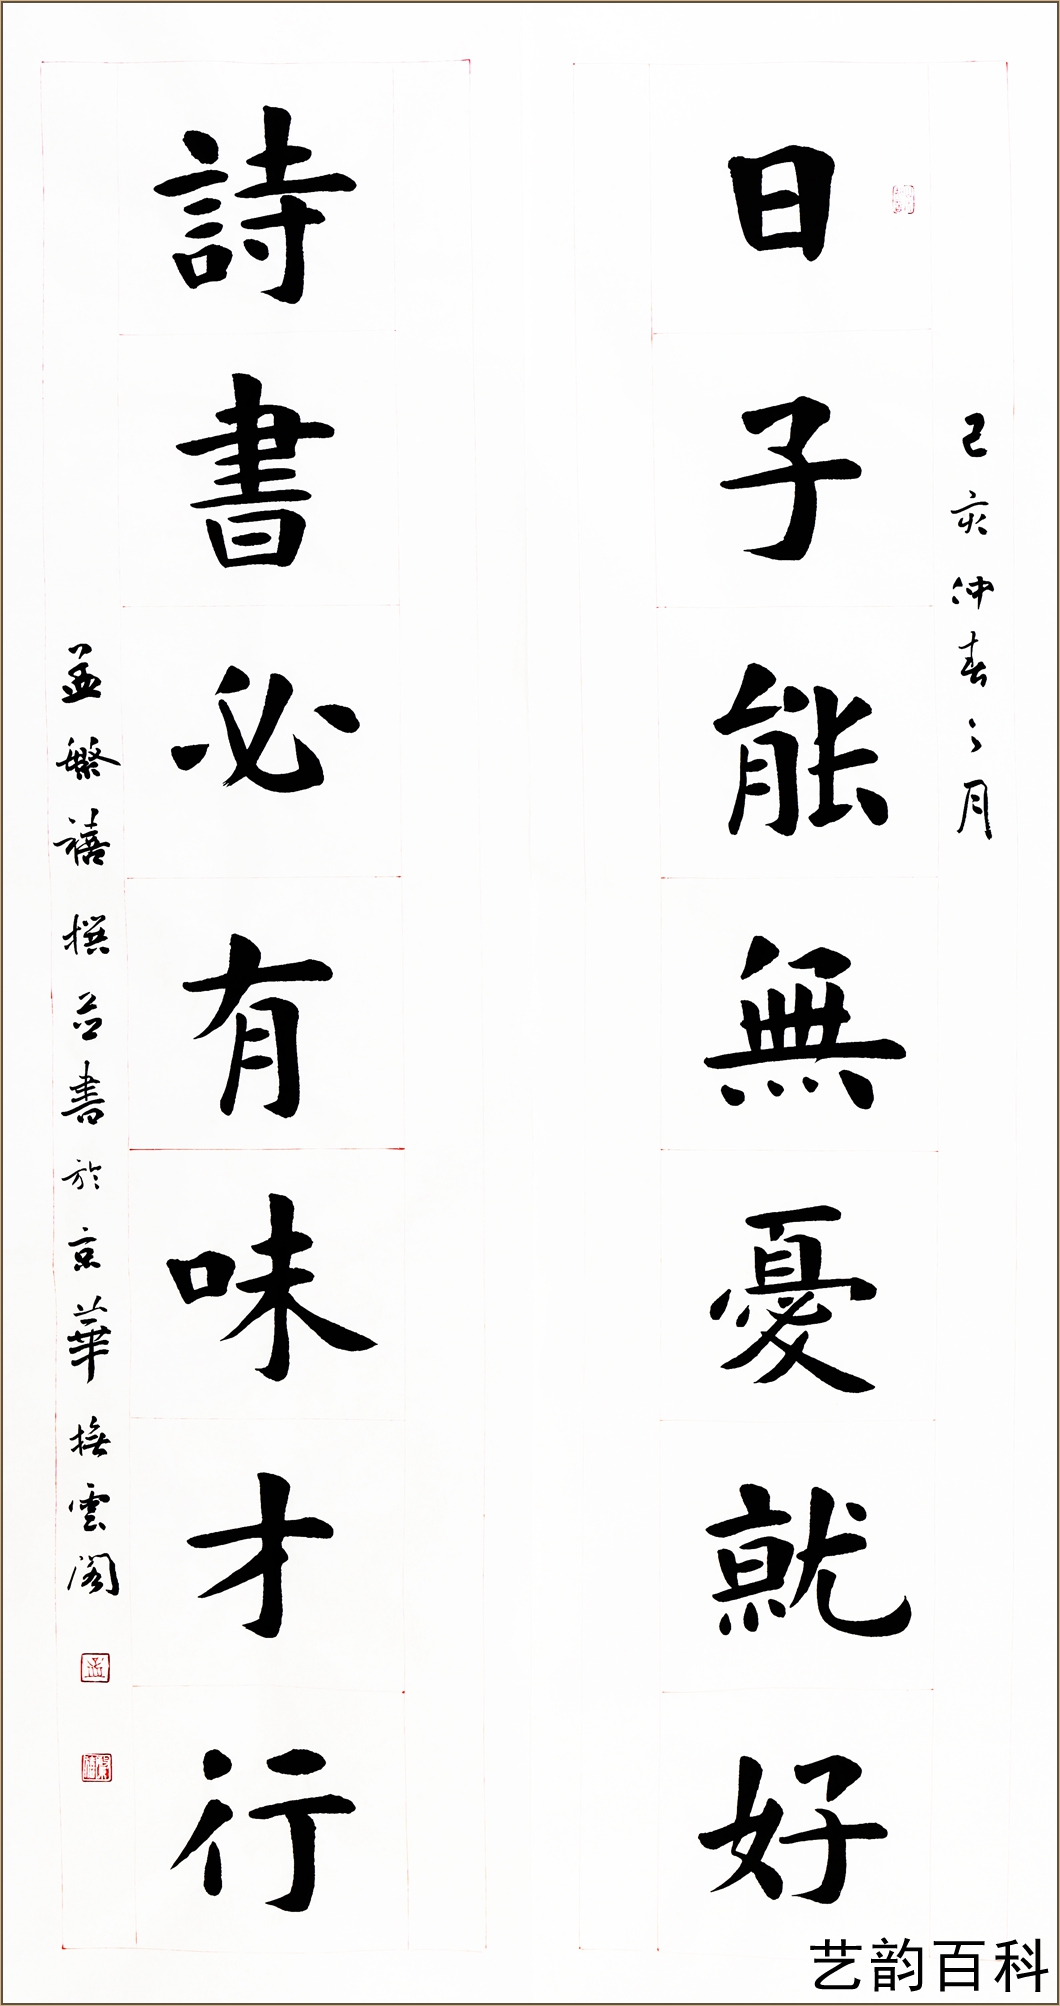 己亥仲春之月
日子能無憂就好
詩書必有味才行
孟繁禧撰並書於京華撫雲閣
艺韵百科